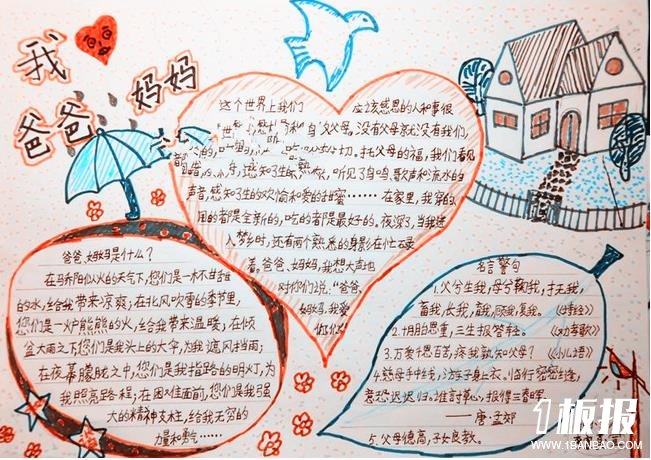 我
爸爸妈妈
这个世界上我们 应该感恩的人和事很
父母,没有父母就没有我们,
切。托父母的福,我们看见
听见了鸟鸣歌声和流水的
声音,感知了生的欢愉和爱的甜蜜……在家里,我穿的、
用的都是全新的,吃的都是最好的。夜深了,当我进
入梦乡时,还有两个熟悉的身影在忙忘录
着。爸爸、妈妈,我想大声地
对你们说:“爸爸、
妈妈,我爱
你们!”
爸爸、妈妈是什么?
在马乔阳似火的天气下,您们是一杯甘甜
的水,给我带来凉爽;在北风吹雪的季节里,
您们是一炉熊熊的火,给我带来温暖;在倾
盆大雨之下您们是我头上的大伞,为我遮风挡雨;
在夜幕朦胧之中,您们是我指路的明灯,为
我照亮路程;在困难面前,您们是我强
大的精神支柱,给我无穷的
力量和勇气……
名言警句
1.父兮生我,母兮鞠我,抚我,
畜我,长我,育我,顾我,复我。《诗经》
2.十月胎恩重,三生报答轻。《劝孝歌》
3.万爱千恩百苦,疼我孰知父母?《小儿语》
4.慈母手中线,游子身上衣。临行密密缝,
意恐迟迟归。谁言寸草心,报得三春晖。
——唐·孟郊
5.父母德高,子女良教。
1板报
WWW.1BANBAO.COM